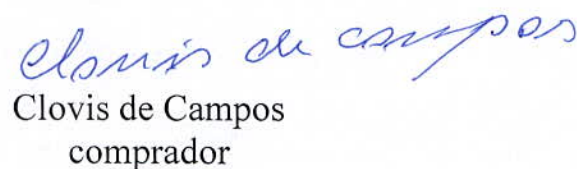 Clovis de Campos
Clovis de Campos
comprador